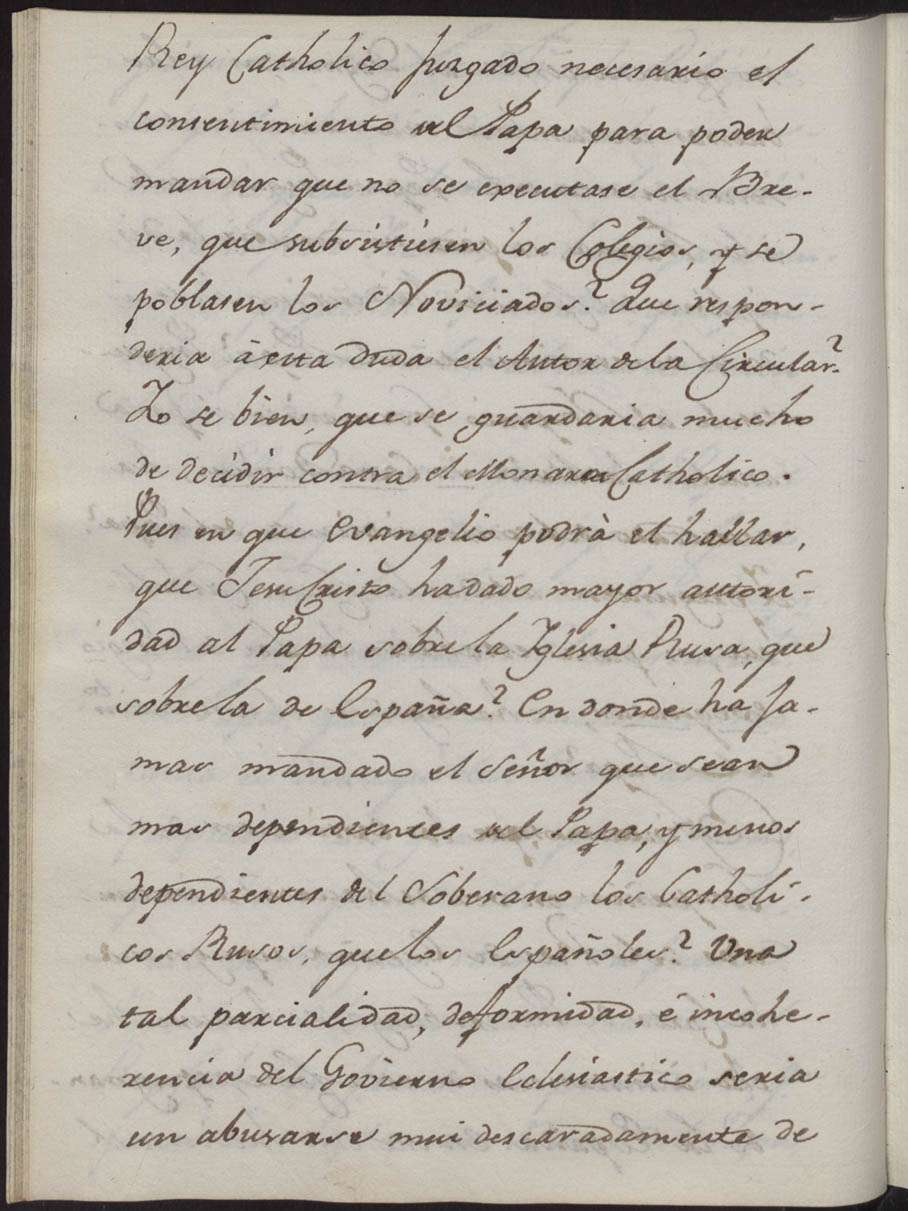 Rey Catholico Juzgado necesario el
consentimiento del Papa para poder
mandar que no se executase el Bre-
ve, que subsistiesen los Colegios, y se
poblasen los Noviciados? Que respon-
deria à esta duda el Autor de la Circular?
Yo se bien, que se guardaria mucho
de decidir contra el Monarca Catholico.
Pues en que Evangelio podrà el hallar,
que Jesu Cristo ha dado mayor autori-
dad al Papa sobre la Iglesia Rusa, que
sobre la de España? En donde ha Ja-
mas mandado el Señor que sean
mas dependientes del Papa, y menos
dependientes del Soberano los Catholi-
cos Rusos, que los Españoles? Una
tal parcialidad, deformidad, è incohe-
rencia del Govierno Eclesiastico seria
un abusarse mui descaradamente de